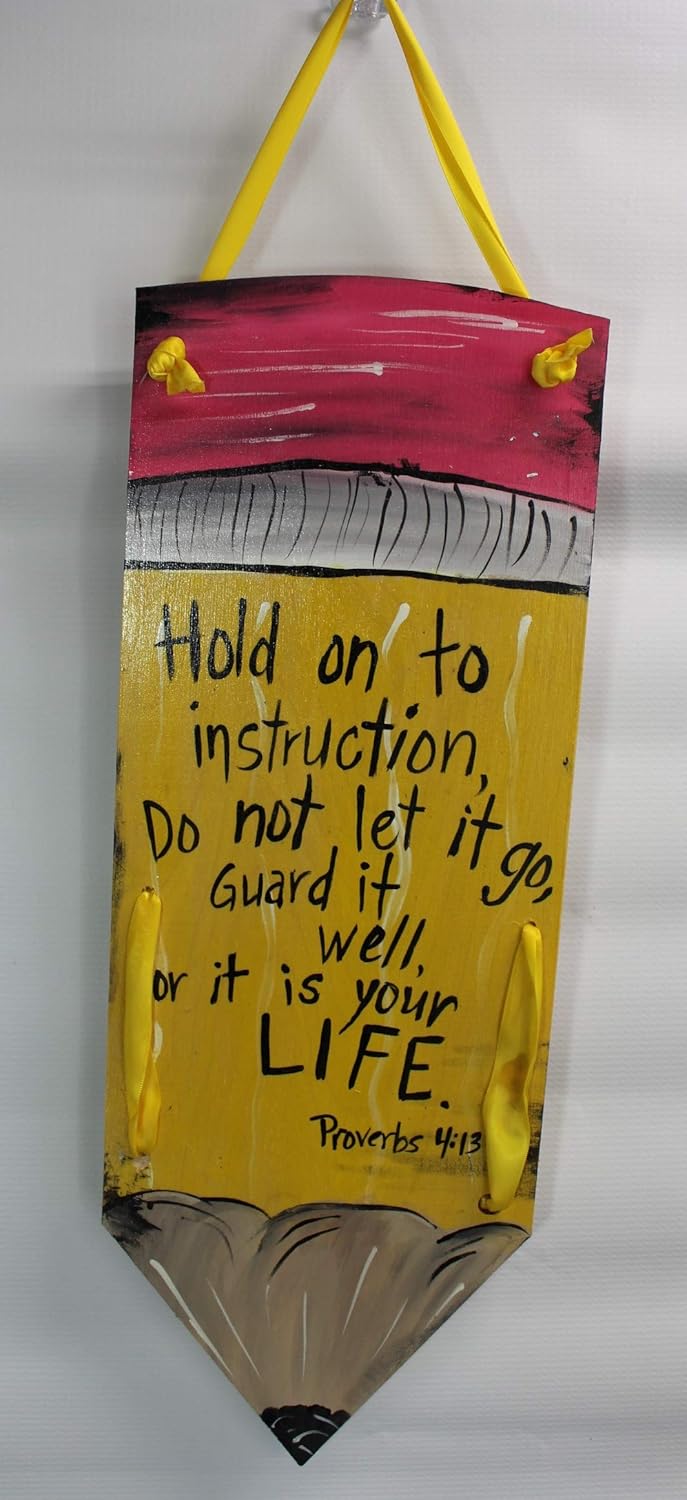 Hold on to
instruction,
Do not let it go,
Guard it
well,
or it is your
LIFE.
Proverbs 4:13